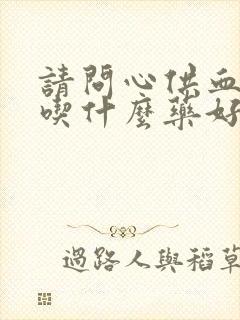 請問心供血
喫什麼藥好
過路人與稻草